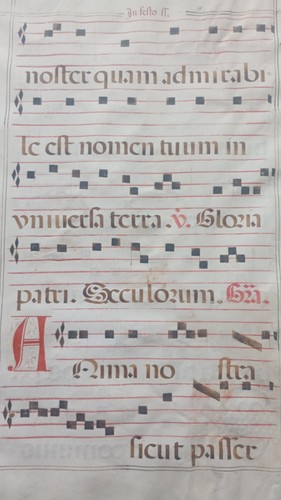 In festo SS.
noster quam admirabi
le est nomen tuum in
vniuersa terra. V. Gloria
patri. Seculorum. Gra.
ANima no stra
sicut passer